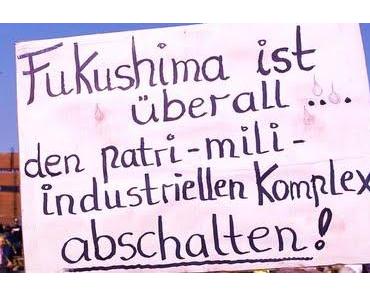 Fukushima ist
überall ....
den patri-mili-
industriellen Komplex
abschalten!